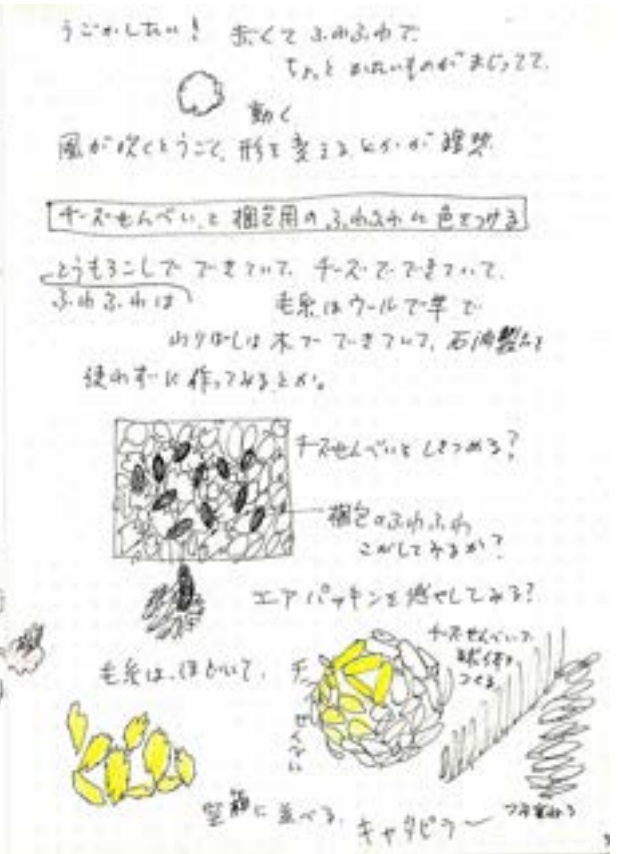 うごかしたい! 赤くてふわふわで、
ちょっとかたいものがまじってて、
動く
風が吹くとうごく、形を変えるとかが理想
チーズせんべい、と梱包用のふわふわに色をつける
とうもろこしでできていて、チーズでできていて、
ふわふわは
毛糸はウールで羊で
わりばしは木でできていて、石油製品を
使わずに作ってみるとか。
チーズせんべいをしきつめる?
梱包のふわふわ
こがしてみるか?
エアパッキンを燃やしてみる?
チーズせんべいで
球体を
つくる
毛糸は、ほどいて、
チーズせんべい
空箱に並べる、
キャタピラー